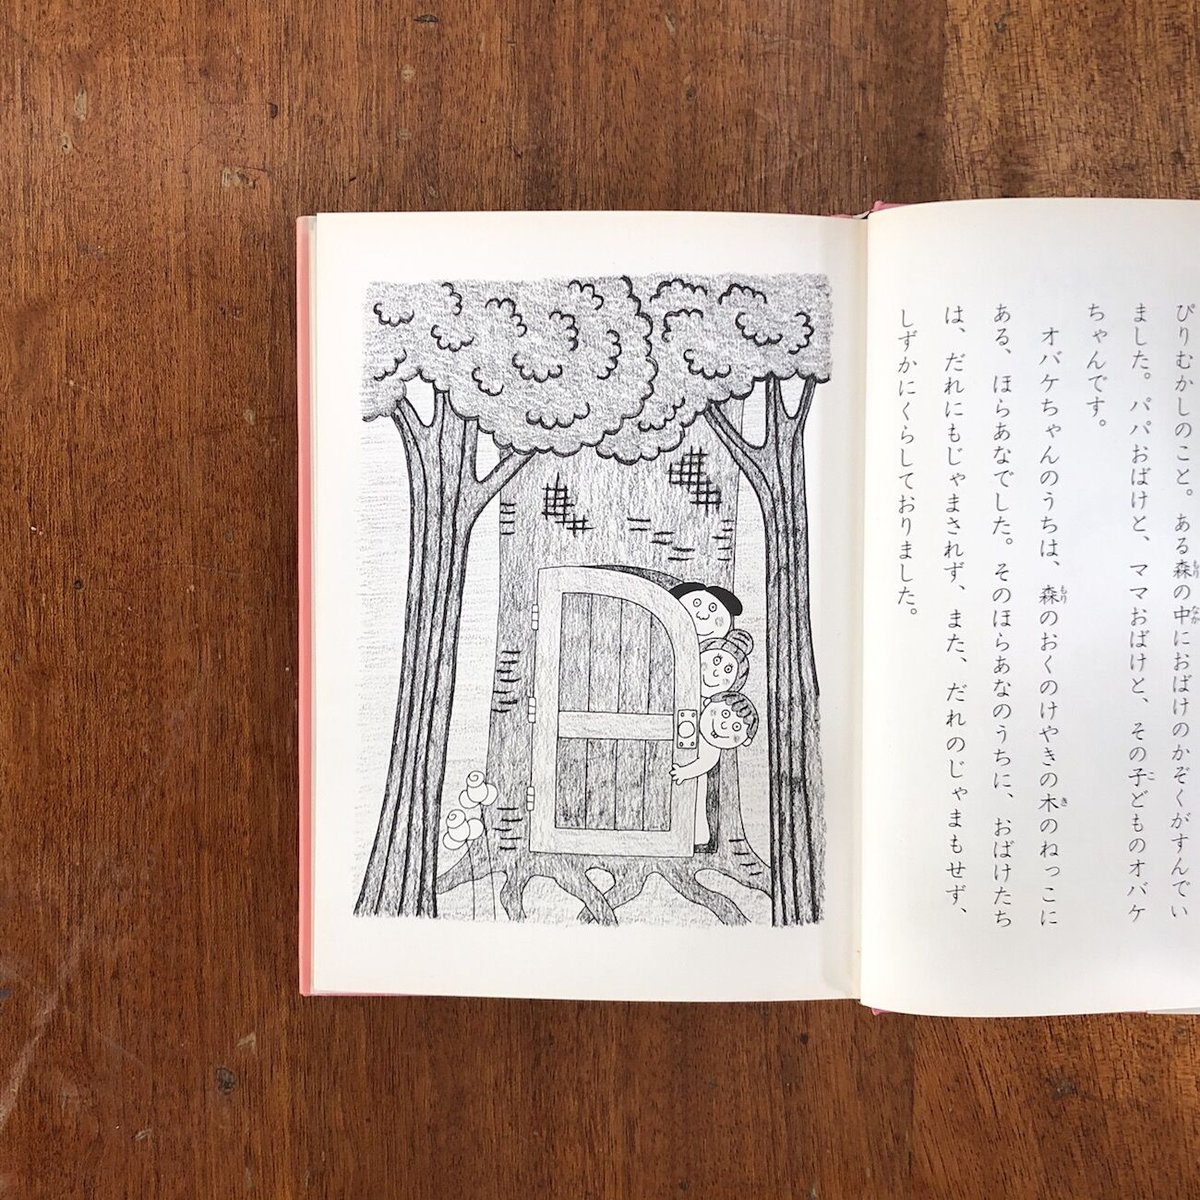 ぴりむかしのこと。ある森の中におばけのかぞくがすんでい
ました。パパおばけと、ママおばけと、その子どものオバケ
ちゃんです。
オバケちゃんのうちは、森のおくのけやきの木のねっこに
ある、ほらあなでした。そのほらあなのうちに、おばけたち
は、だれにもじゃまされず、また、だれのじゃまもせず、
しずかにくらしておりました。